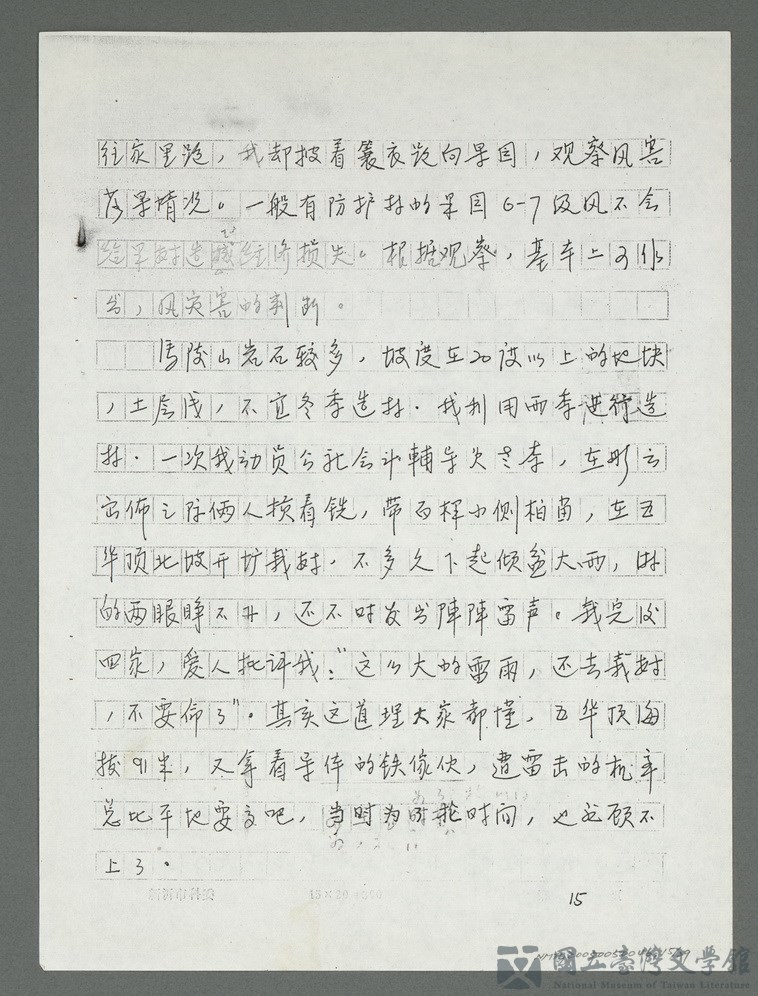 往家里跑，我却披着蓑衣跑向果园，观察风害
落果情况。一般有防护林的果园6-7级风不会
给果树造成经济损失。根据观察，基本上可作
出，风灾害的判断。
青陵山岩石较多，坡度在20度以上的地块
，土层浅，不宜冬季造林．我利用雨季进行造
林．一次我动员公社会计辅导员老李，在彤云
密佈之际俩人携着铣，带百棵小侧柏苗，在五
华顶北坡开圹栽树．不多久下起倾盆大雨，淋
的两眼睁不开，还不时发出陣陣雷声。栽完后
回家，爱人批评我：“这么大的雷雨，还去栽树
，不要命了”。其实这道理大家都懂，五华顶海
拔91米，又拿着导体的铁傢伙，遭雷击的机率
总比平地要高吧，当时为抢时间，也就顾不
上了。
15
國立臺灣文學館
National Museum of Taiwan Literature